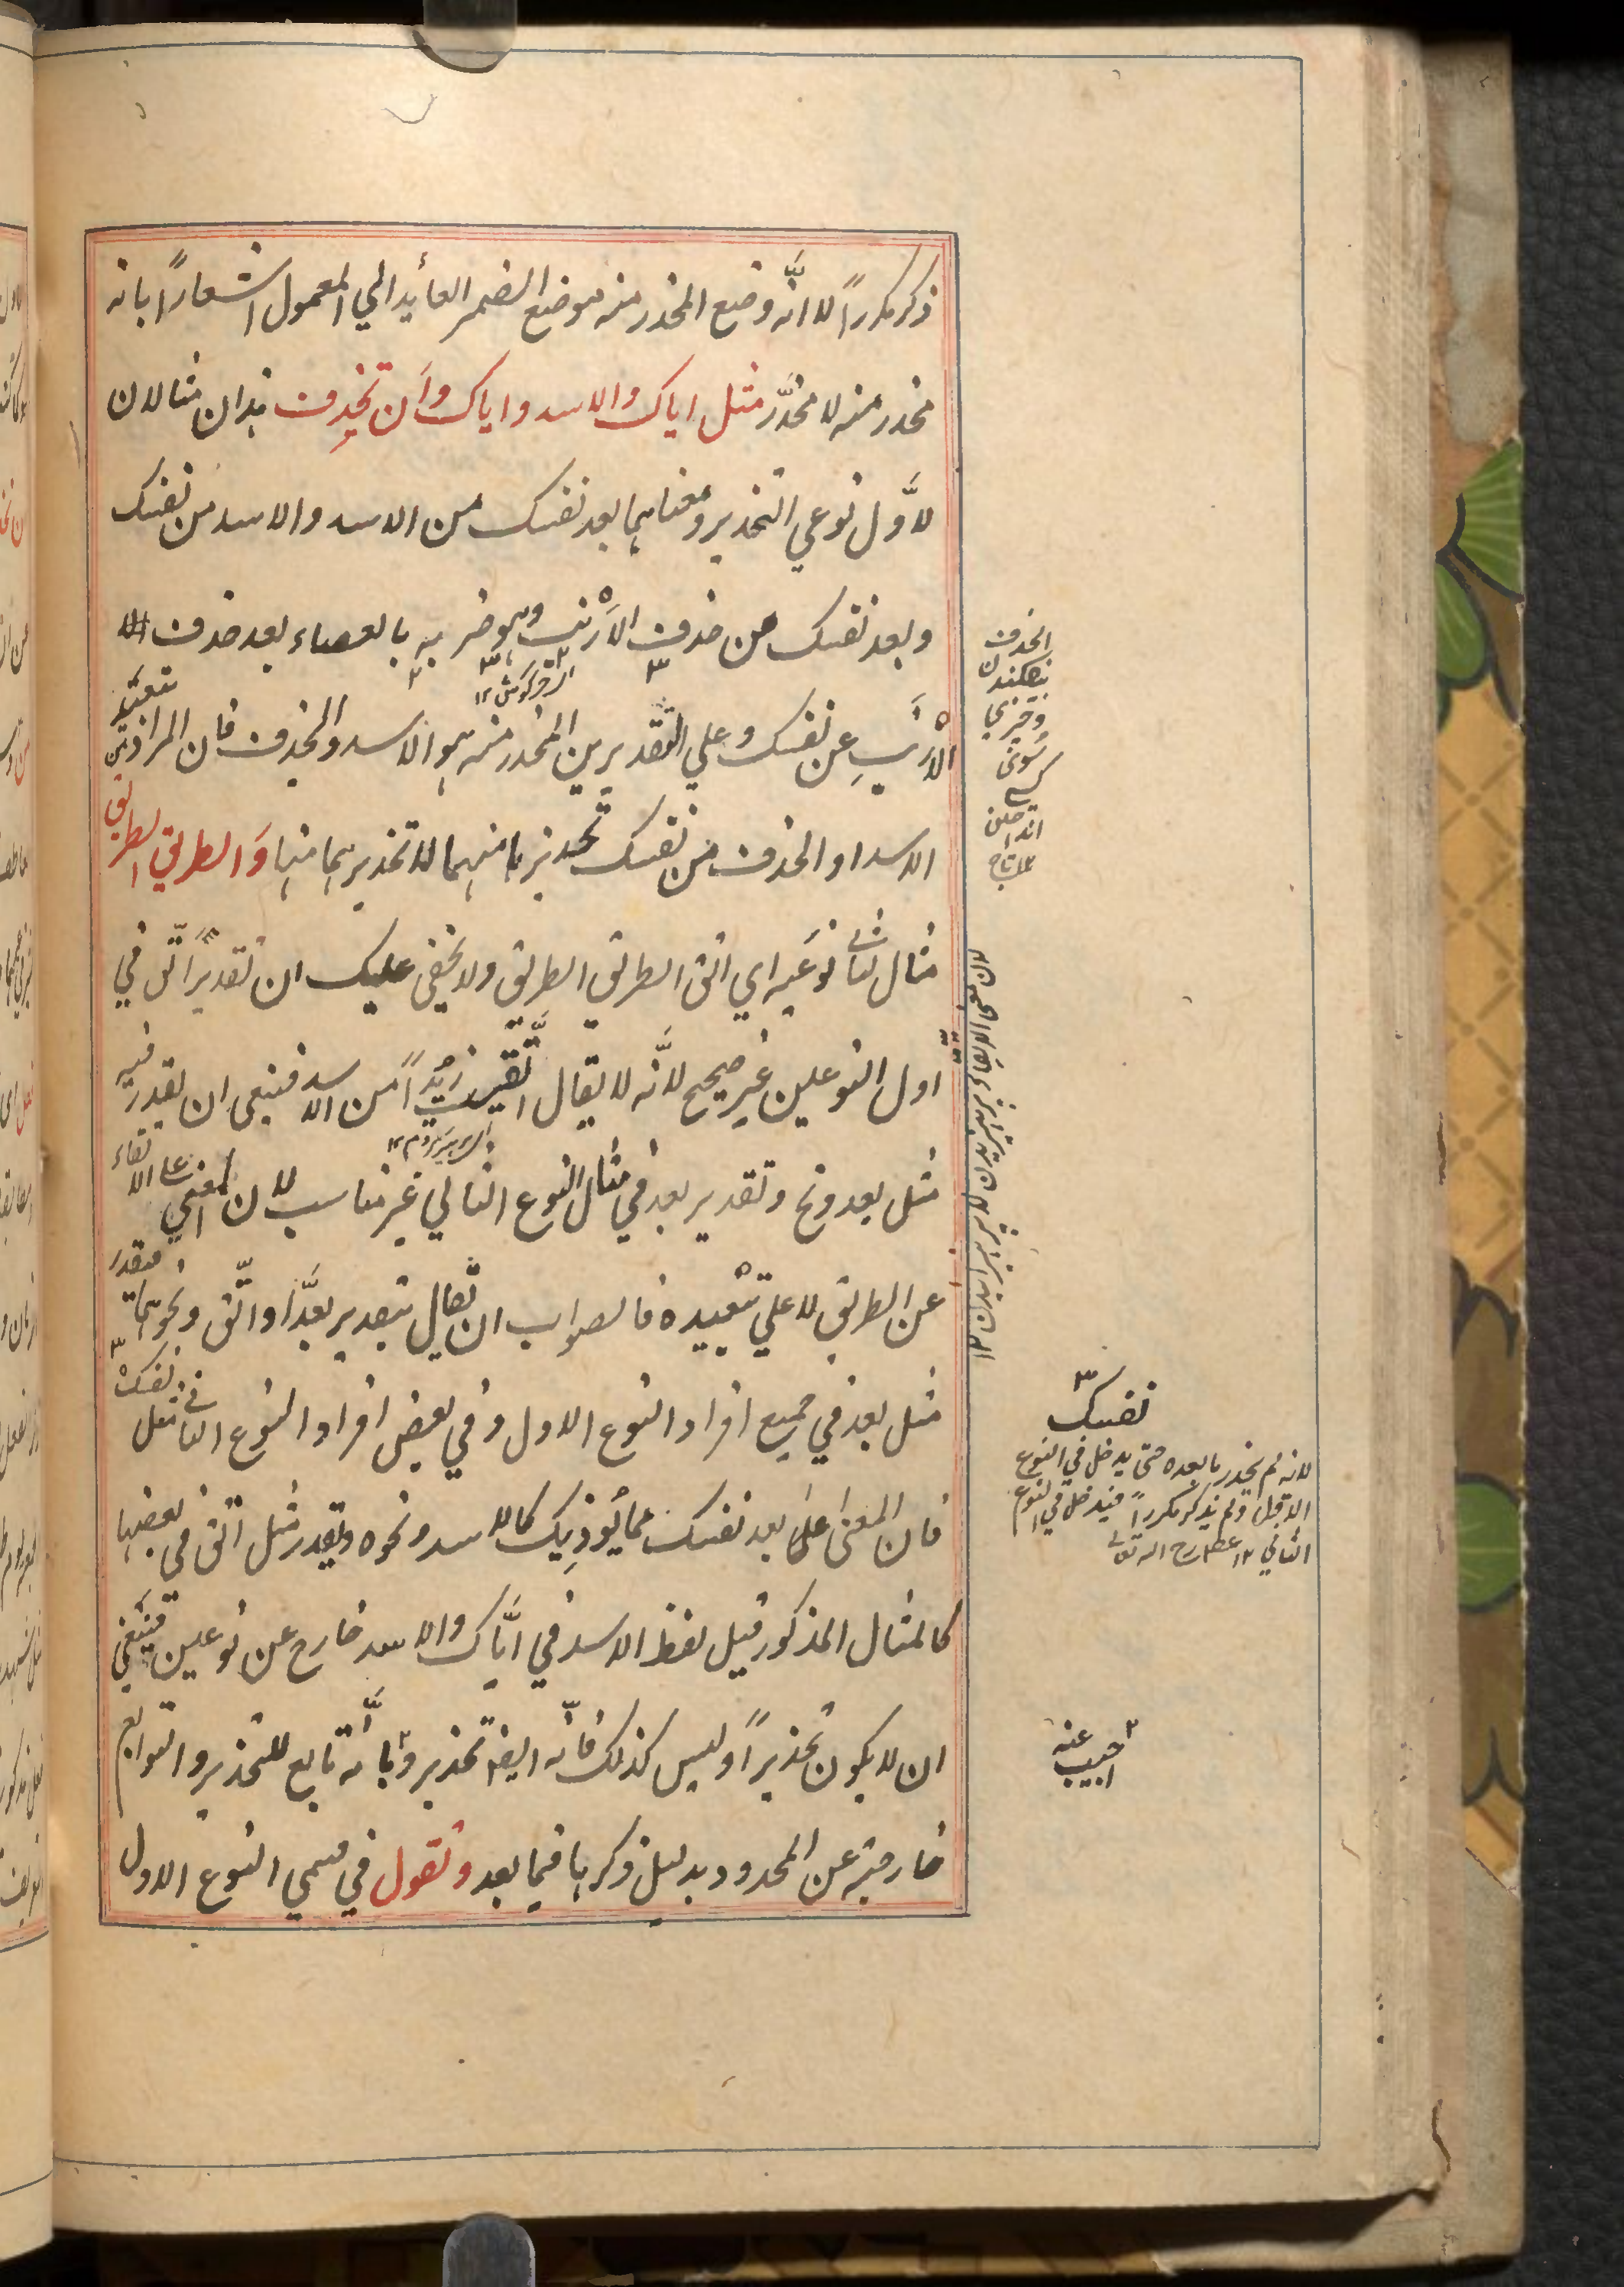 ذكر مكرراً لا انّه وضع المحذر منه موضع الضمير العايد الي المعمول اشعاراً بانه
محذر منه لا محذَّر مثل اياك والاسد واياك وأن تحذف هذان مثالان
لاوَّل نوعي التحذير ومعناهما بعد نفسك من الاسد والاسد من نفسك
وبعد نفسك من حذف الأرْنب وهو ضربه بالعصاء بعد حذف
الأرنبِ عن نفسك وعلي التقديرين المحذر منه هو الاسد والحذف فان المراد من تبعيد
الاسد او الحذف من نفسك تحذيرها منهما لا تحذيرهما منها وَالطريق الطريق
مثال لثاني نوعَيه اي اتق الطريق الطريق ولا يخفى عليك ان تقديرَ اتّق في
اول النوعين غير صحيح لانَّه لا يقال اتَّقيت زيْداً من الاسد فينبغي ان يقدر فيه
مثل بعد ونح وتقدير بعد في مثال النوع الثاني غير مناسب لان المعني على الاتقاء
عن الطريق لا على تبْعيده فالصواب ان يّقال بتقدير بعَّد او اتّق ونحوهما فتقدر
مثل بعد في جميع افراد النوع الاول وفي بعض افراد النوع الثاني مثل نفسك
فان المعنى على بعد نفسك مما يُوذِيك كالاسد ونحوه وتقدر مثل اتق في بعضها
كالمثال المذكور قيل لفظ الاسد في ايَّاك والاسد خارج عن نوعين فينبغي
ان لا يكون تحذيراً وليس كذلك فانّه ايضا تحذير وبانّه تابع للتحذير والتوابع
خارجة عن المحدود بدليل ذكرها فيما بعد وتقول في قسمي النوع الاول
الحذف
انداختن
نفسك
لانه لم يحذر ما بعده حتى يدخل في النوع
الاول ولم يذكر مكرراً فيدخل في النوع
الثاني ١٢
اجيب عنه